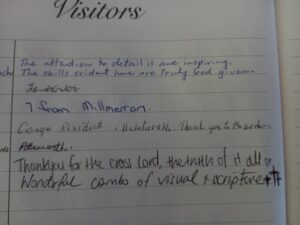 Visitors
The attention to detail is awe inspiring.
The skills evident here are truly God given.
7 from Millmerran
Resident. Unbelievable. Thank you to the
Thankyou for the cross Lord, the truth of it all
Wonderful combo of visual + scripture